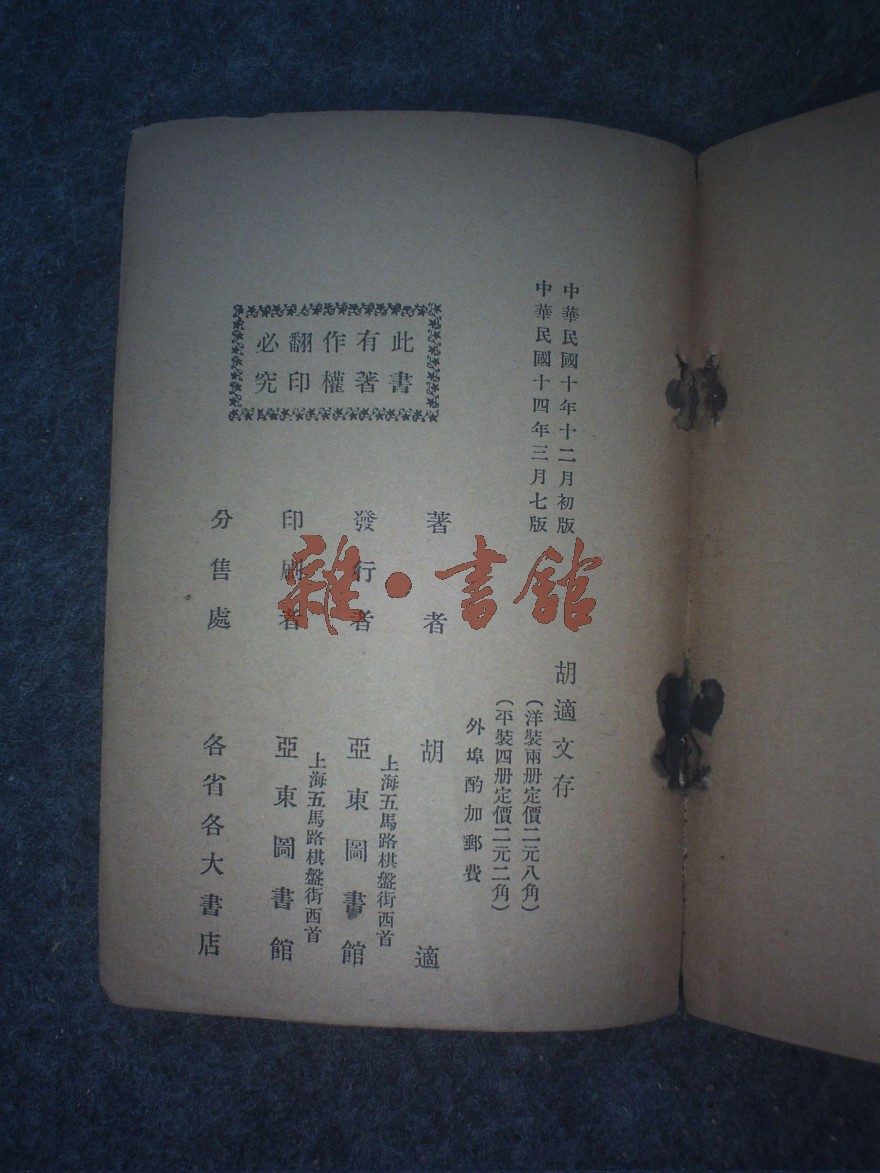 中華民國十年十二月初版
中華民國十四年三月七版
胡適文存
(洋裝兩册定價二元八角)
(平裝四册定價二元二角)
外埠酌加郵費
著者 胡適
發行者 上海五馬路棋盤街西首
亞東圖書館
印刷者 上海五馬路棋盤街西首
亞東圖書館
分售處 各省各大書店
此書
有著
作權
翻印
必究
雜·書館